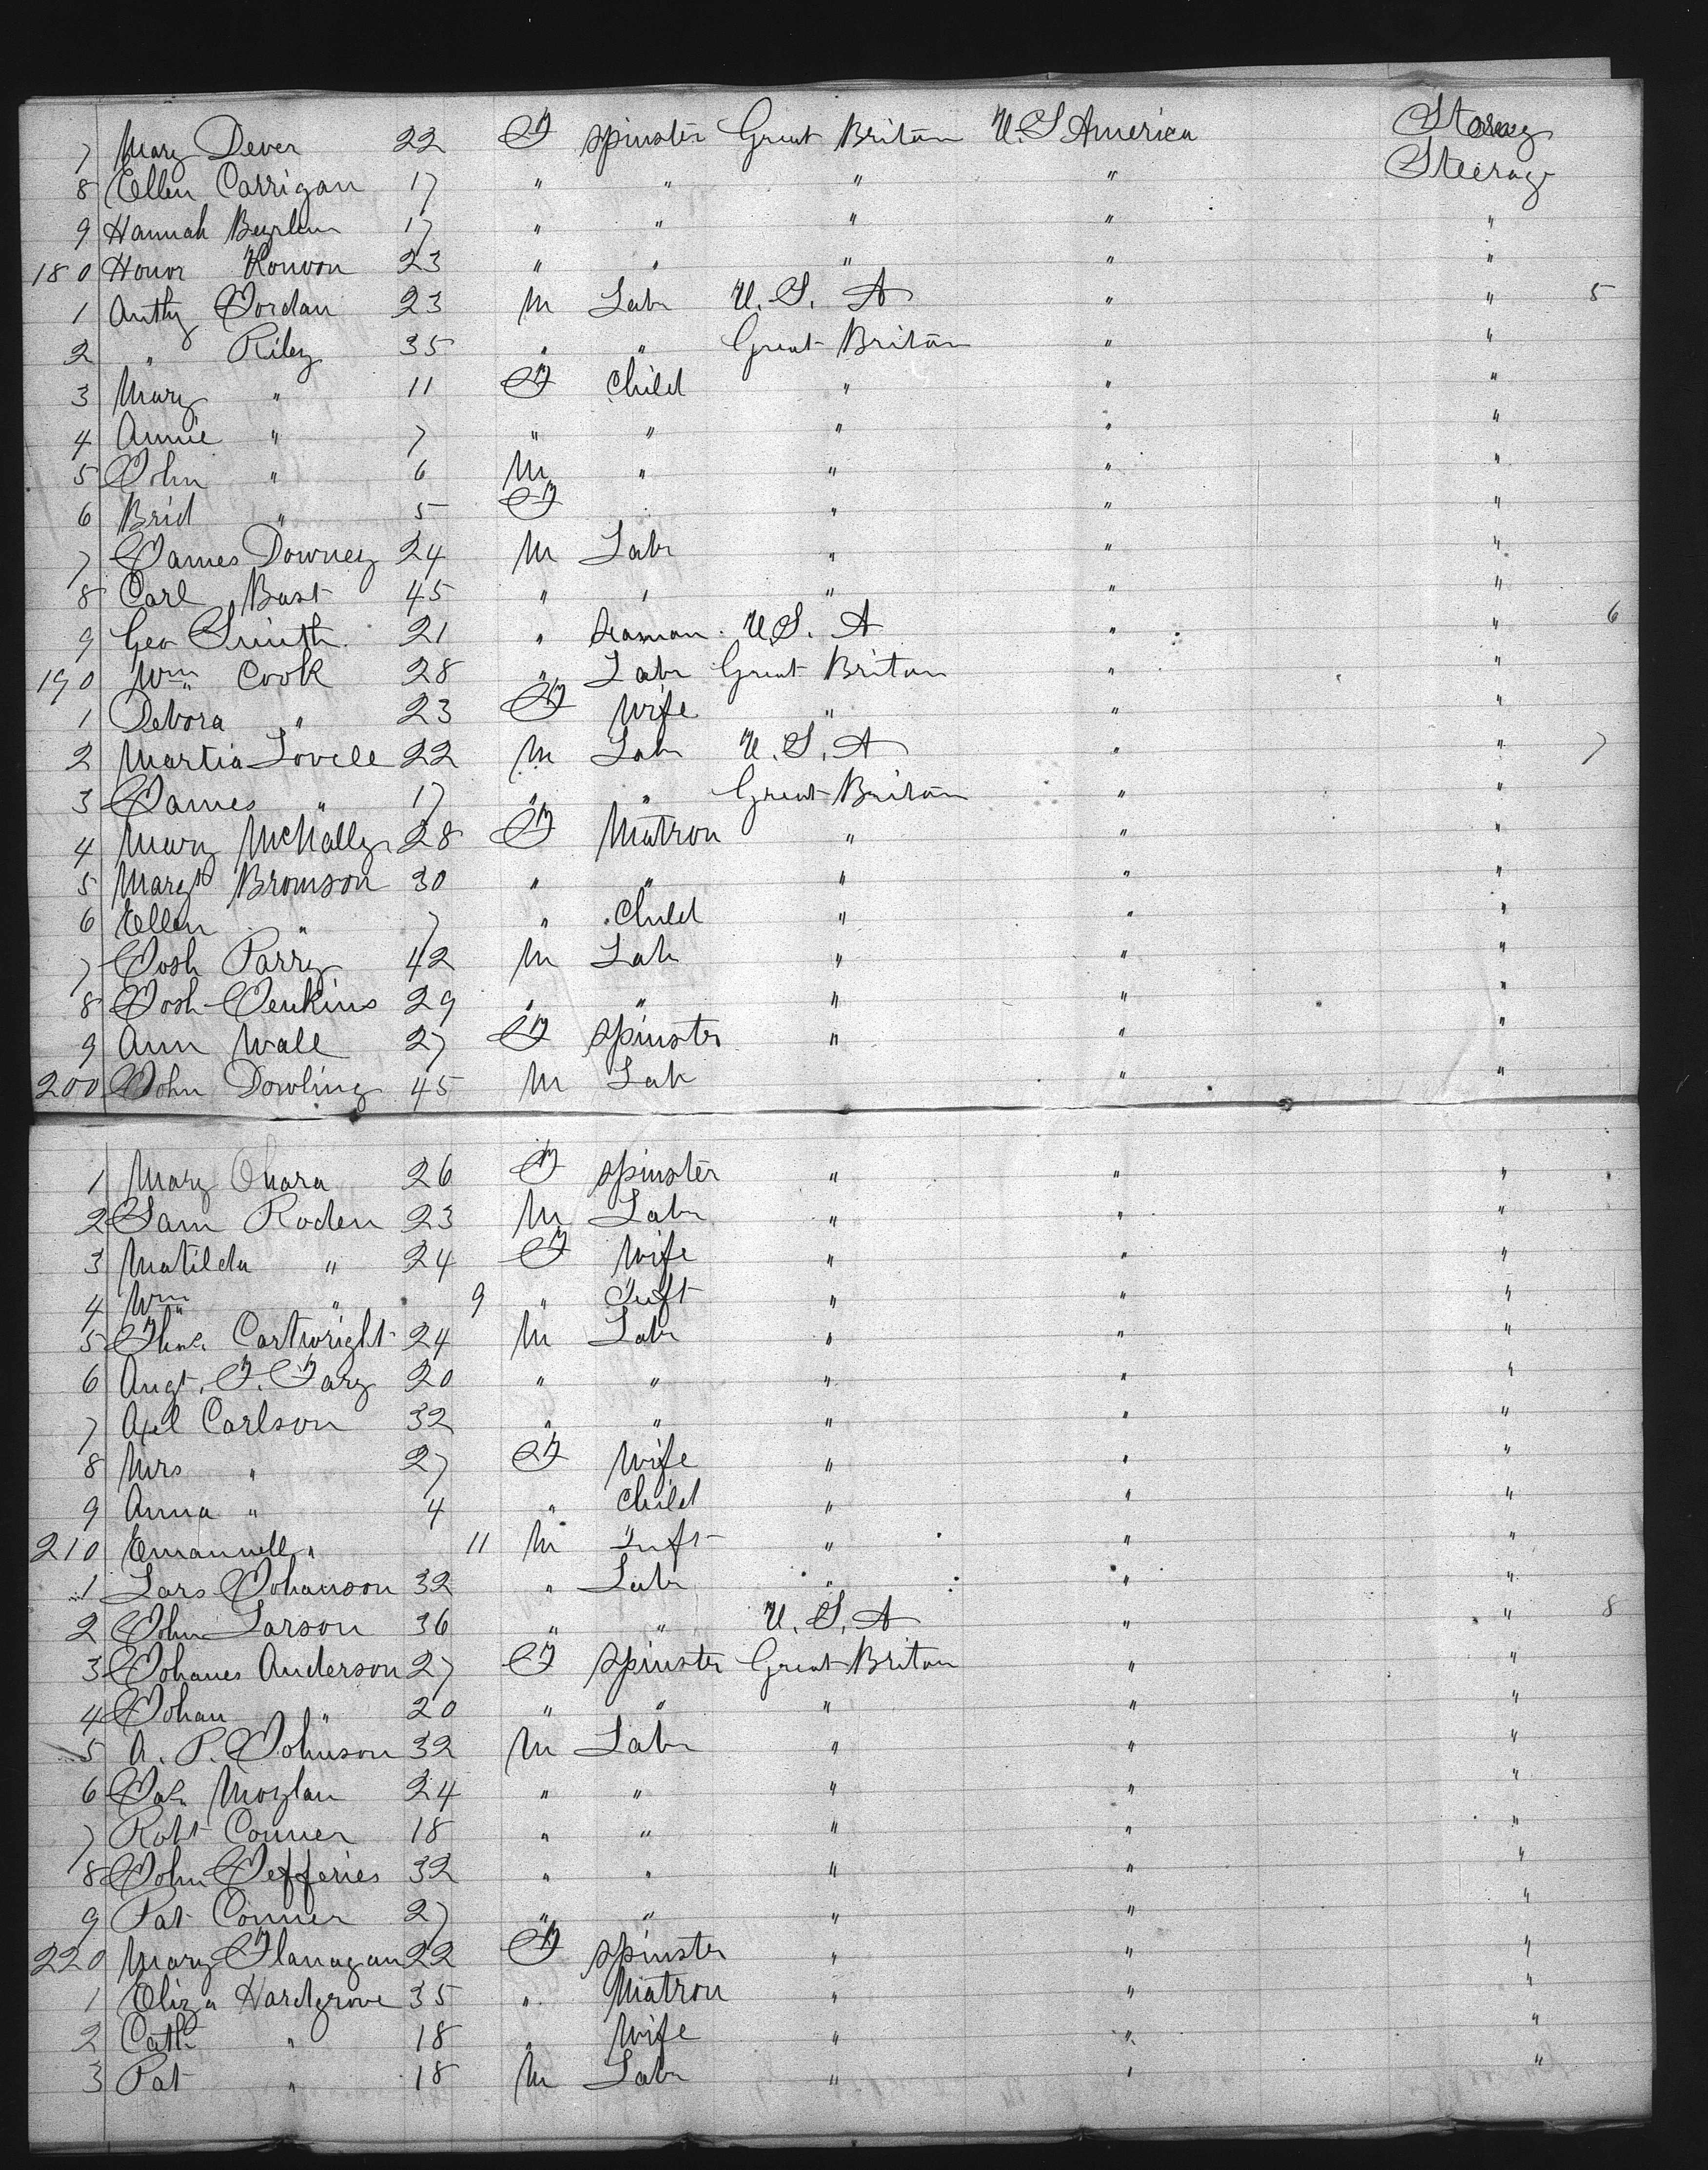 7 Mary Dever 22 F Spinster Great Britan U. S America
8 Ellen Carrigan 17 " " " " Steerage
9 Hannah 17 " " " " "
180 Honor 23 " " " " "
1 Anthy Jordan 23 M Labr U. S. A " " 5
2 " Riley 35 " " Great Britan " "
3 Mary " 11 F Child " " "
4 Annie " 7 " " " " "
5 John " 6 M " " " "
6 Brid " 5 F " " " "
7 James Downey 24 M Labr " " "
8 Carl Bust 45 " " " " "
9 Geo Smith. 21 " Seaman. U. S. A " " 6
190 Wm Cook 28 " Labr Great Britan " "
1 Debora " 23 F Wife " " "
2 Martin Lovell 22 M Labr U. S. A " " 7
3 James " 17 " " Great Britan " "
4 Mary McNally 28 F Matron " " "
5 Margt Bromson 30 " " " " "
6 Ellen " 7 " Child " " "
7 Josh Parry 42 M Labr " " "
8 Josh Jenkins 29 " " " " "
9 Ann Wall 27 F Spinster " " "
200 John Dowling 45 M Labr " "
1 Mary Ohara 26 F Spinster " " "
2 Sam Roden 23 M Labr " " "
3 Matilda " 24 F Wife " " "
4 Wm " 9 " Inft " " "
5 Thos Cartwright 24 M Labr " " "
6 Augt. F. 20 " " " " "
7 Axel Carlson 32 " " " " "
8 Mrs " 27 F Wife " " "
9 Anna " 4 " Child " " "
210 Emanuell " 11 M Inft " " "
1 Lars Johanson 32 " Labr " " "
2 John Larson 36 " " U. S. A " " 8
3 Johanes Anderson 27 F Spinster Great Britan " "
4 Johan " 20 " " " " "
5 A. P. Johnson 32 M Labr " " "
6 Jas. 24 " " " " "
7 Robt Conner 18 " " " " "
8 John Jefferies 32 " " " " "
9 Pat Conner 27 " " " " "
220 Mary Flanagan 22 F Spinster " " "
1 Eliza Hardgrove 35 " Matron " " "
2 Cath " 18 " Wife " " "
3 Pat " 18 M Labr " " "